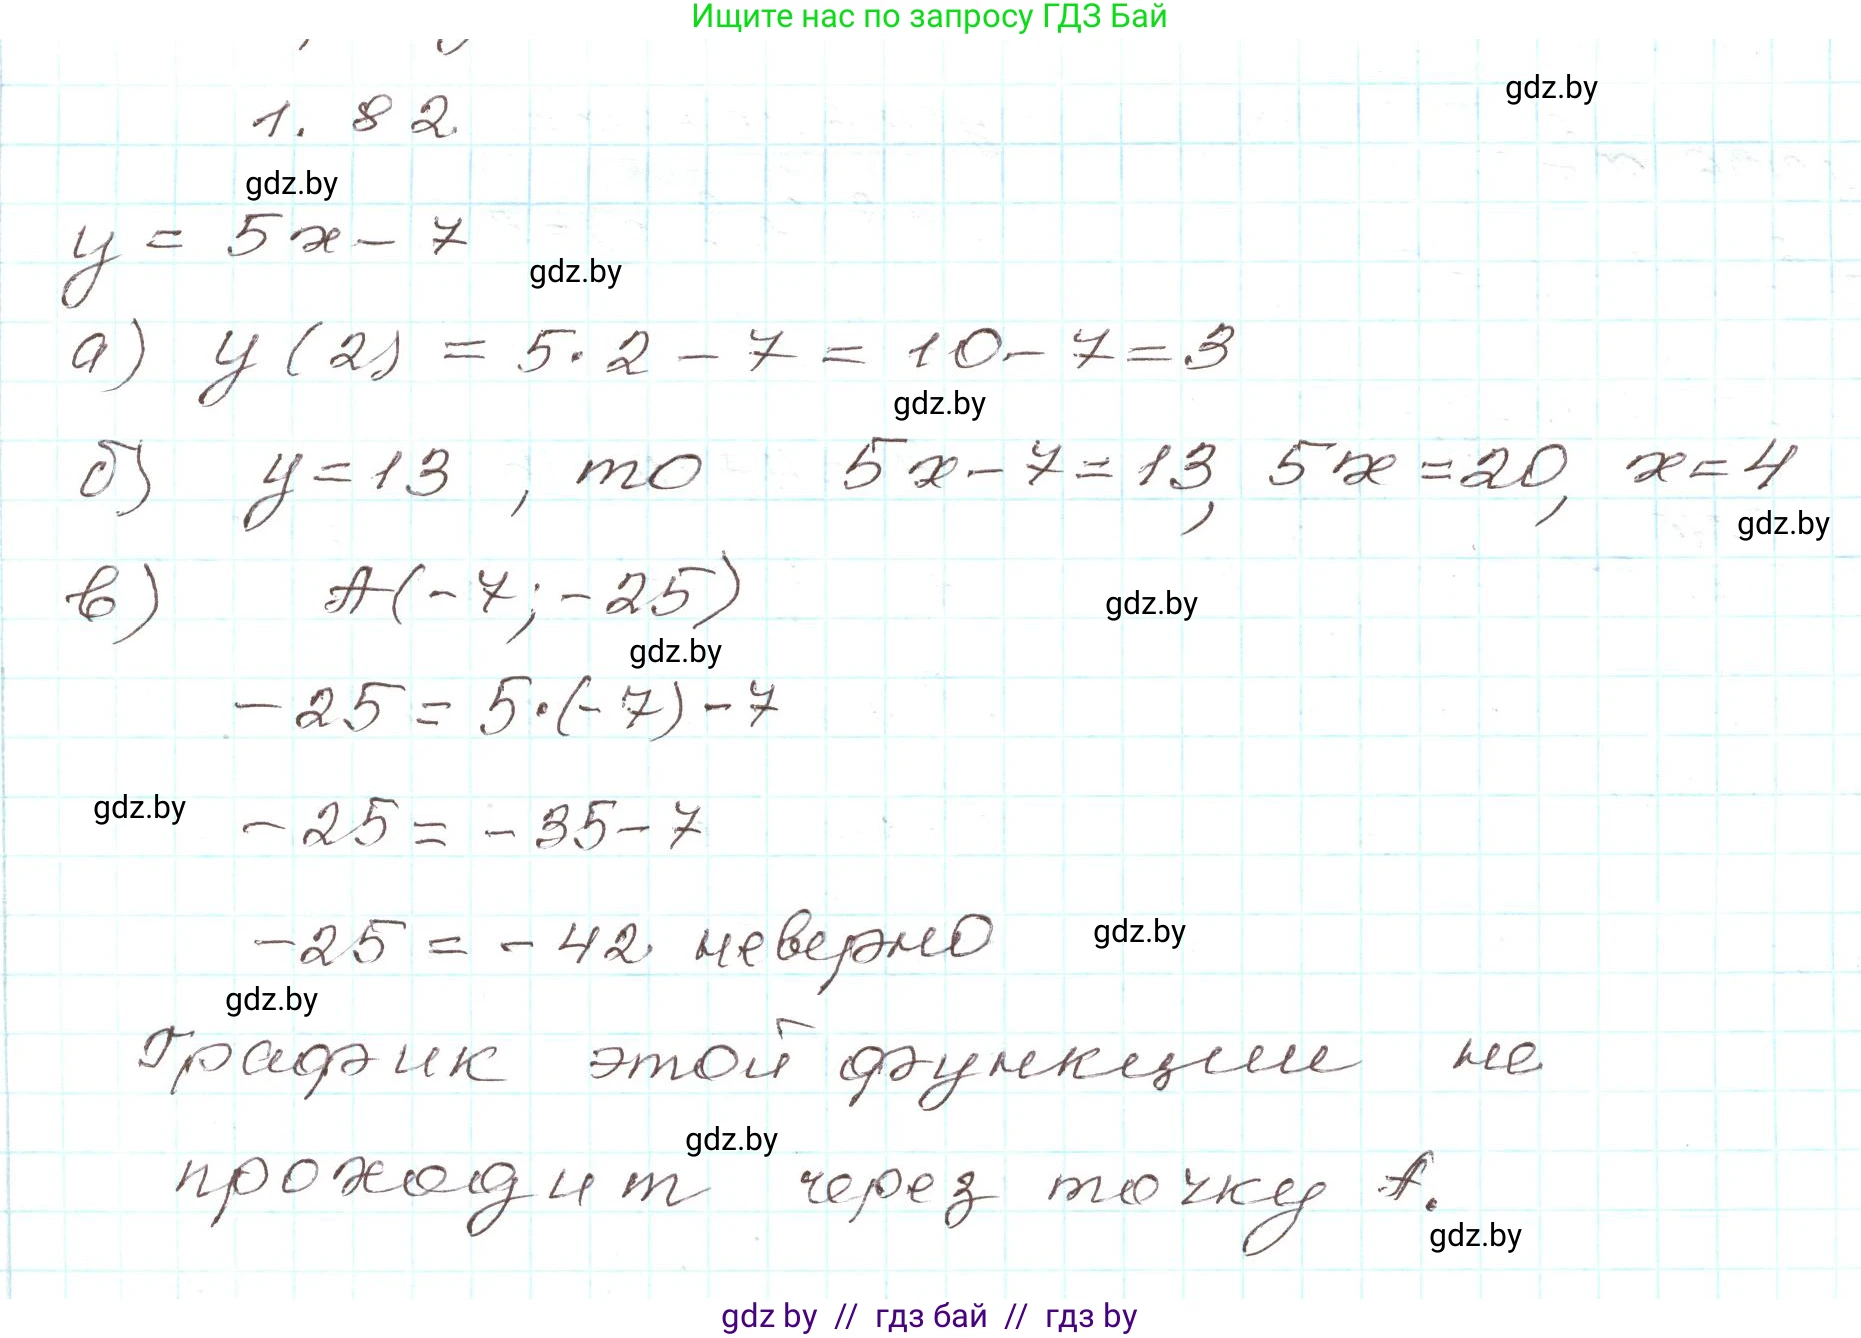 Ищите нас по запросу ГДЗ Бай
gdz.by
1.82
gdz.by
y = 5x - 7
gdz.by
а) y(2) = 5·2 - 7 = 10 - 7 = 3
gdz.by
б) y = 13, то 5x - 7 = 13, 5x = 20, x = 4
gdz.by
в) A(-7; -25)
gdz.by
gdz.by
-25 = 5·(-7) - 7
gdz.by
-25 = -35 - 7
-25 = -42 неверно
gdz.by
gdz.by
График этой функции не
gdz.by
проходит через точку A.
gdz.by
gdz by // гдз бай // гдз by